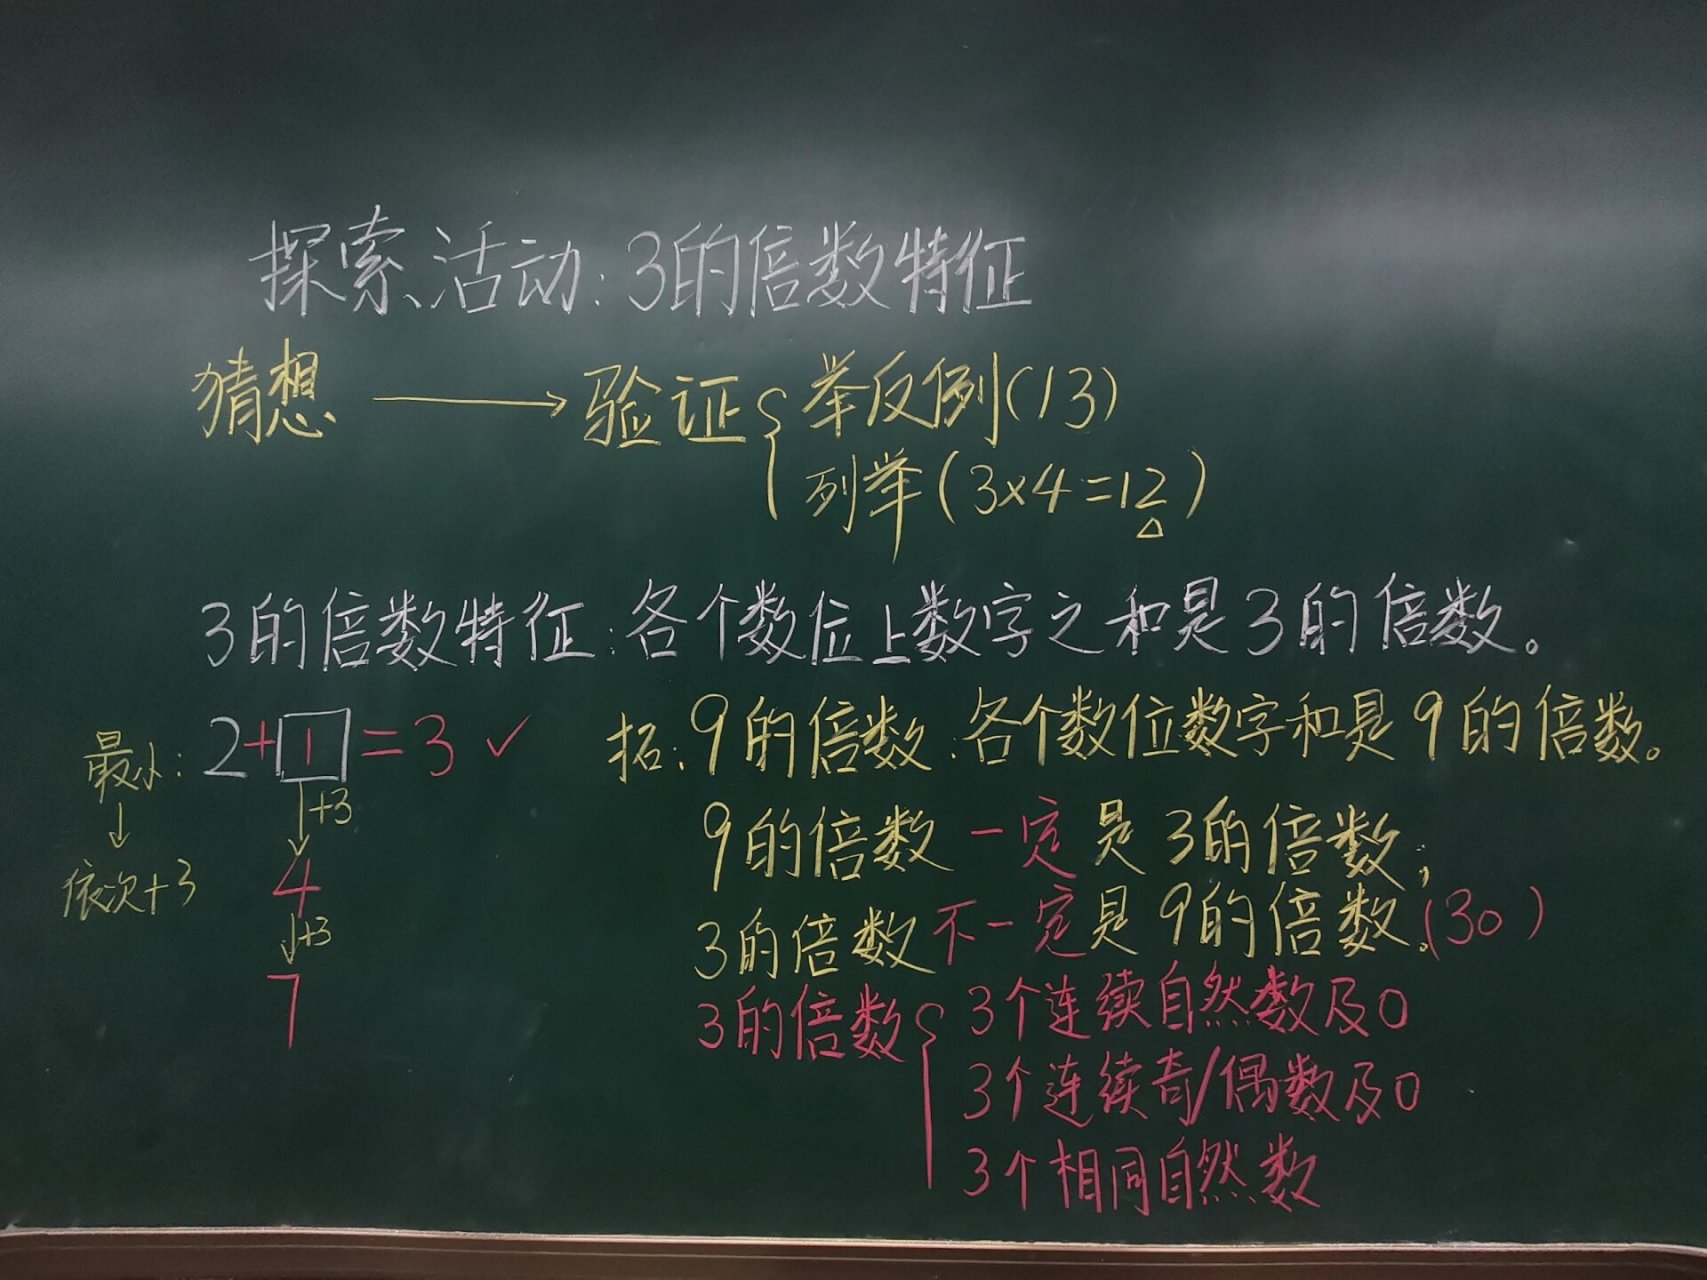 探索活动:3的倍数特征
猜想 → 验证 { 举反例(13)
列举(3×4=12)
△
3的倍数特征:各个数位上数字之和是3的倍数。
最小: 2+1=3 ✓
↓ ↓+3
依次+3 4
↓+3
7
拓:9的倍数:各个数位数字和是9的倍数。
9的倍数一定是3的倍数;
3的倍数不一定是9的倍数。(30)
3的倍数 { 3个连续自然数及0
3个连续奇/偶数及0
3个相同自然数